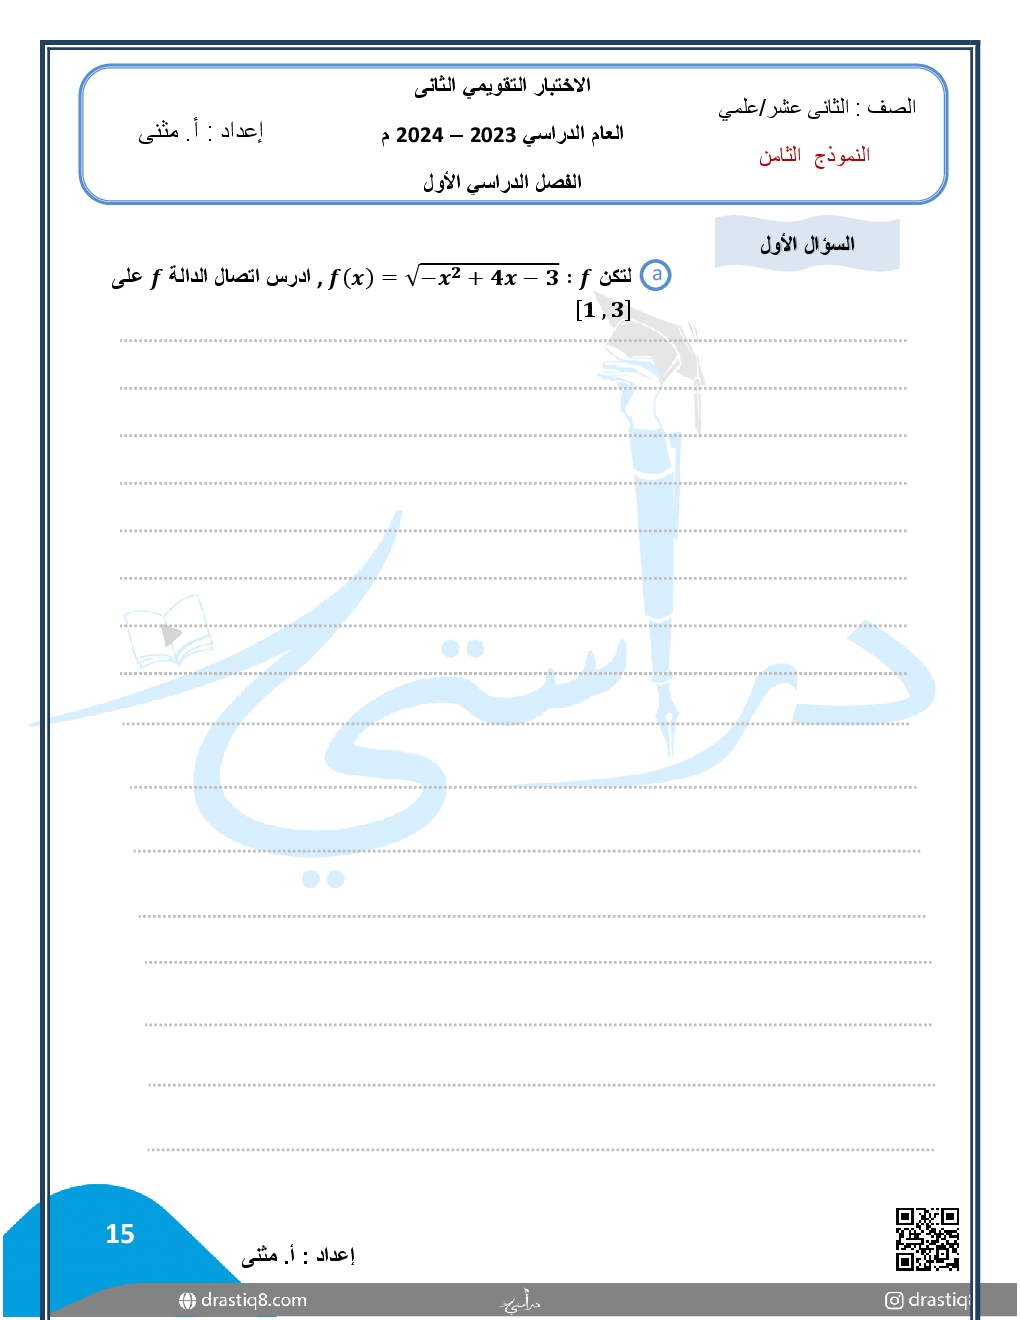 الصف : الثاني عشر/علمي
النموذج الثامن
الاختبار التقويمي الثاني
العام الدراسي 2023 – 2024 م
الفصل الدراسي الأول
إعداد : أ. مثنى
السؤال الأول
a لتكن f : f(x) = √(−x² + 4x − 3) , ادرس اتصال الدالة f على
[1 , 3]
دراستي
15
إعداد : أ. مثنى
drastiq8.com
دراستي
drastiq8